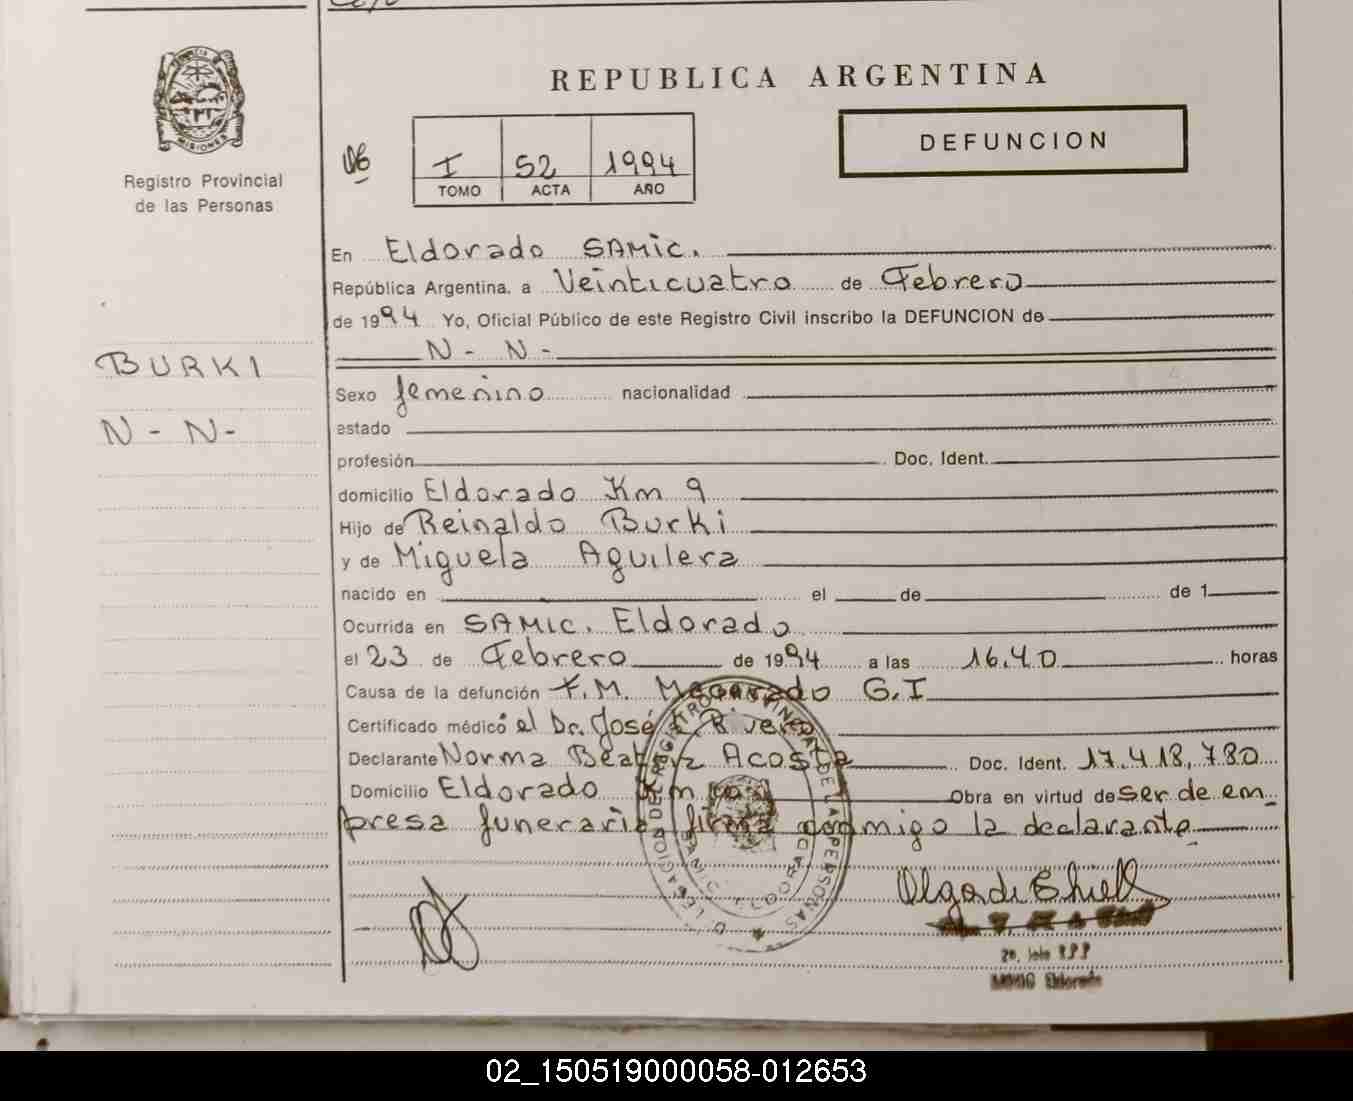 REPUBLICA ARGENTINA
DEFUNCION
MISIONES
Registro Provincial
de las Personas
I 52 1994
TOMO ACTA AÑO
En Eldorado SAMIC.
República Argentina, a Veinticuatro de Febrero
de 1994 Yo, Oficial Público de este Registro Civil inscribo la DEFUNCION de
N - N -
BURKI
N - N -
Sexo femenino nacionalidad
estado
profesión Doc. Ident.
domicilio Eldorado Km 9
Hijo de Reinaldo Burki
y de Miguela Aguilera
nacido en el de de 1
Ocurrida en SAMIC. Eldorado
el 23 de Febrero de 1994 a las 16.40 horas
Causa de la defunción F.M. Macerado G.I
Certificado médico el Dr. José Rivero
Declarante Norma Beatriz Acosta Doc. Ident. 17.418.780
Domicilio Eldorado Km Obra en virtud de ser de em
presa funeraria firma conmigo la declarante
DELEGACION DEL REGISTRO PROVINCIAL DE LAS PERSONAS
SAMIC. ELDORADO
Eldorado
02_150519000058-012653